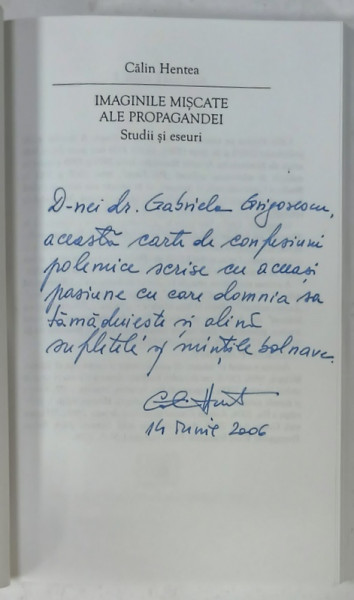 Călin Hentea
IMAGINILE MIȘCATE
ALE PROPAGANDEI
Studii și eseuri
D-nei dr. Gabriela Grigorescu,
această carte de confesiuni
polemice scrise cu aceeași
pasiune cu care domnia sa
tămăduiește și alină
sufletele și mințile bolnave.
14 iunie 2006